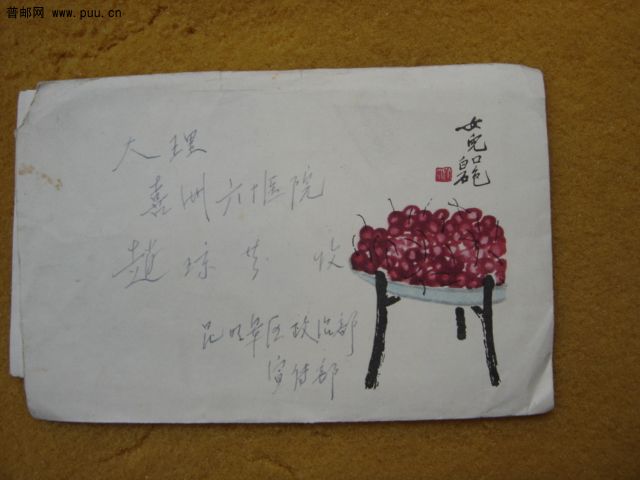 普邮网 www.puu.cn
大理
喜洲六十医院
赵琼芬 收
昆明军区政治部
宣传部
女儿口色
白石